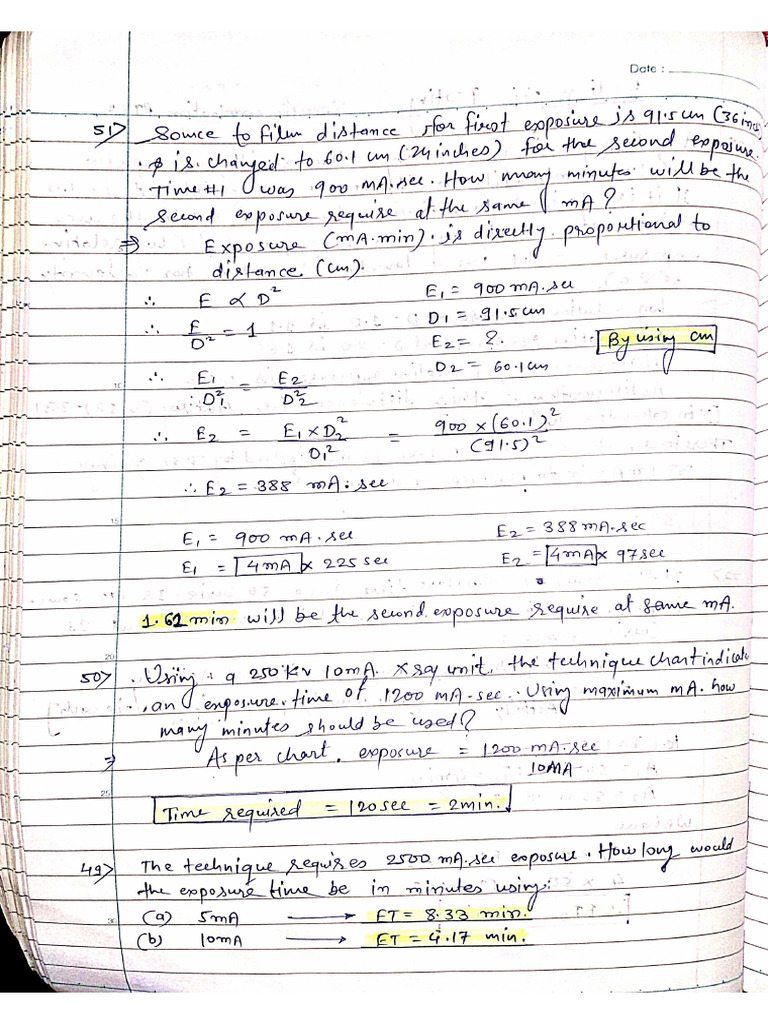 Date :
51) Source to film distance for first exposure is 91.5 cm (36 inches)
is changed to 60.1 cm (24 inches) for the second exposure.
Time #1 was 900 mA.sec. How many minutes will be the
second exposure require at the same mA?
⇒ Exposure (mA.min) is directly proportional to
distance (cm).
∴ E ∝ D² E₁ = 900 mA.sec
∴ E/D² = 1 D₁ = 91.5 cm
E₂ = ? By using cm
∴ E₁/D₁² = E₂/D₂² D₂ = 60.1 cm
∴ E₂ = E₁ × D₂² / D₁² = 900 × (60.1)² / (91.5)²
∴ E₂ = 388 mA.sec
E₁ = 900 mA.sec E₂ = 388 mA.sec
E₁ = 4mA × 225 sec E₂ = 4mA × 97 sec
1.61 min will be the second exposure require at same mA.
50) Using a 250 kv 10mA X ray unit, the technique chart indicate
an exposure time of 1200 mA-sec. Using maximum mA. how
many minutes should be used?
⇒ As per chart, exposure = 1200 mA.sec / 10mA
Time required = 120 sec = 2 min.
49) The technique requires 2500 mA.sec exposure. How long would
the exposure time be in minutes using:
(a) 5mA → ET = 8.33 min.
(b) 10mA → ET = 4.17 min.